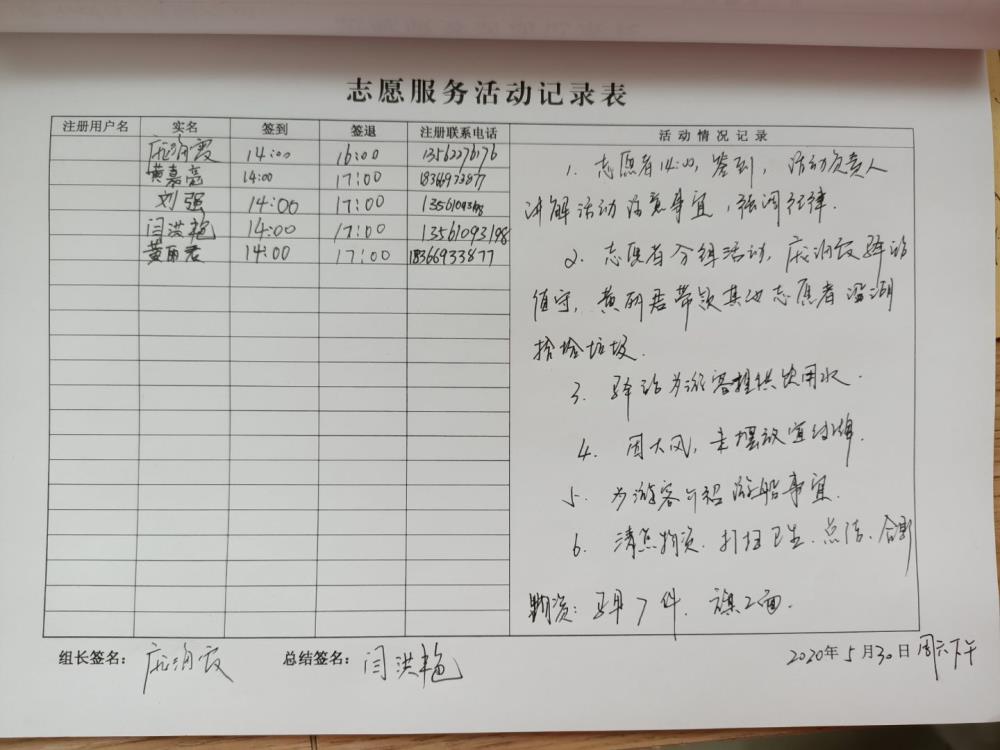 志愿服务活动记录表
注册用户名 实名 签到 签退 注册联系电话 活动情况记录
庞润霞 14:00 16:00 13562276176
黄嘉亮 14:00 17:00 18366933877
刘强 14:00 17:00 13561093198
闫洪艳 14:00 17:00 13561093198
黄丽君 14:00 17:00 18366933877
1. 志愿者14:00,签到,活动负责人
讲解活动注意事宜,强调纪律.
2. 志愿者分组活动,庞润霞驿站
值守,黄丽君带领其他志愿者沿湖
捡拾垃圾.
3. 驿站为游客提供饮用水.
4. 因大风,未摆放宣传牌.
5. 为游客介绍游船事宜.
6. 清点物资.打扫卫生.总结.合影
物资: 7件. 旗2面.
组长签名: 庞润霞 总结签名: 闫洪艳 2020年5月30日 周六下午